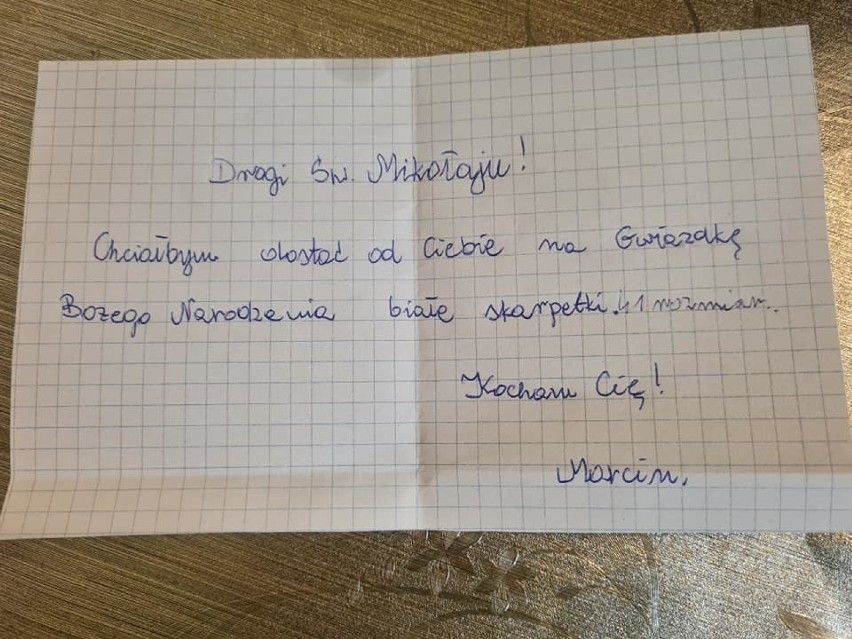 Drogi Św. Mikołaju!
Chciałbym dostać od Ciebie na Gwiazdkę
Bożego Narodzenia białe skarpetki. 41 rozmiar.
Kocham Cię!
Marcin.